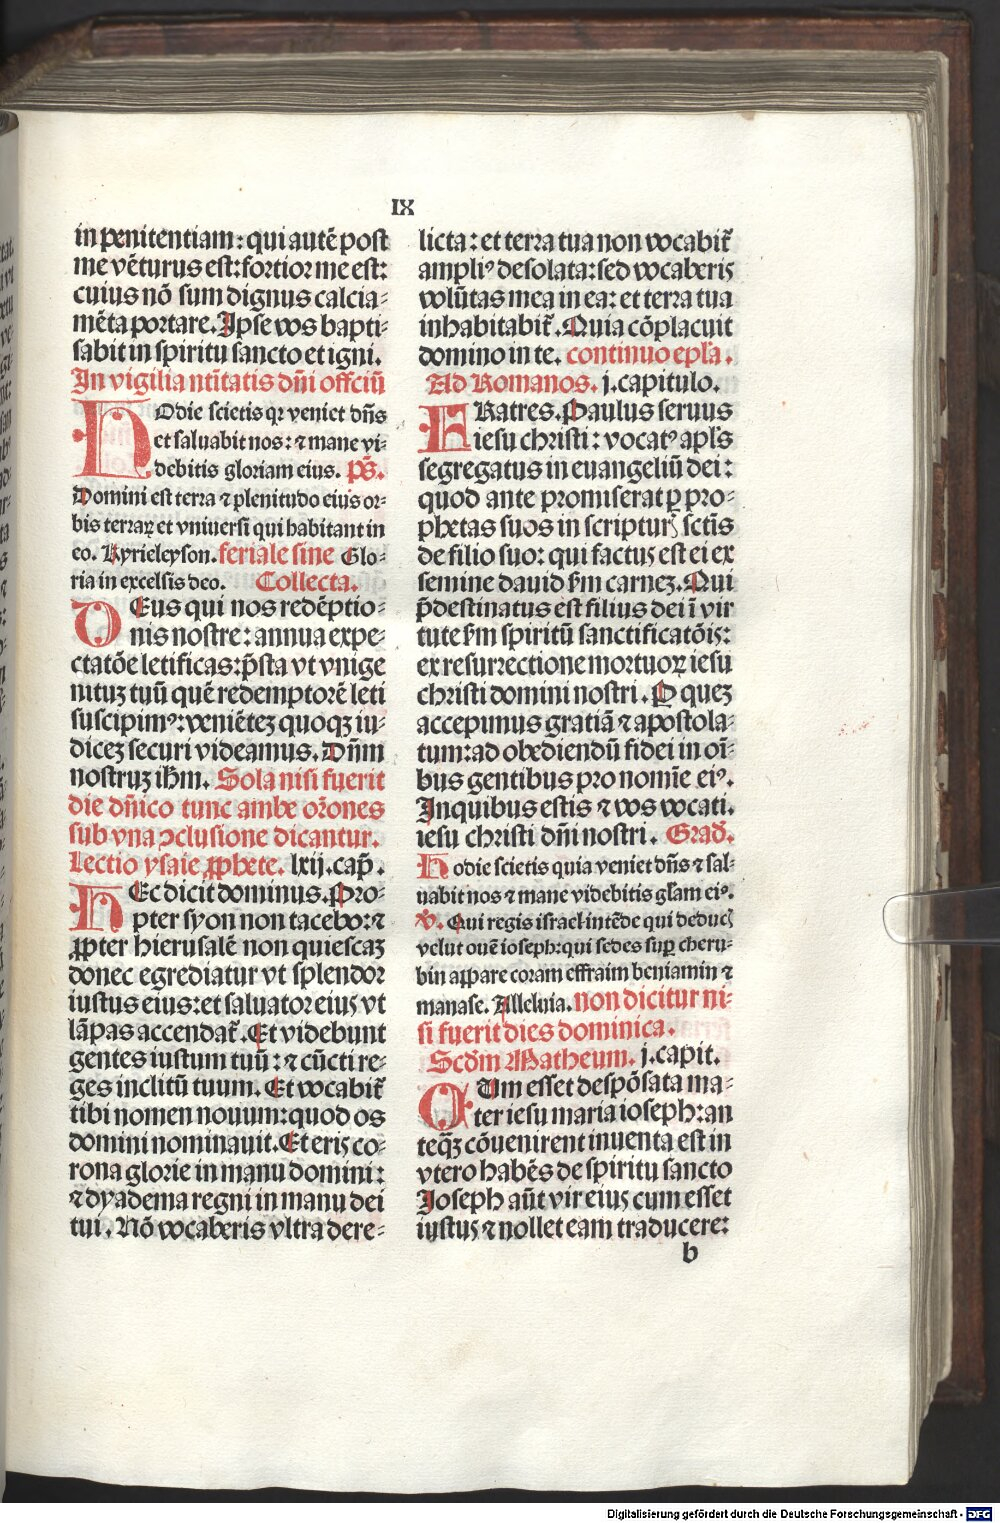 IX
in penitentiam: qui autē post
me vēturus est: fortior me est:
cuius nō sum dignus calcia⸗
mēta portare. Ipse vos bapti⸗
sabit in spiritu sancto et igni.
In vigilia ntītatis dn̄i offciū
HOdie scietis qꝛ veniet dn̄s
et saluabit nos: ⁊ mane vi⸗
debitis gloriam eius. p̄s.
Domini est terra ⁊ plenitudo eius or⸗
bis terraꝝ et vniuersi qui habitant in
eo. Kyrieleyson. feriale sine Glo⸗
ria in excelsis deo. Collecta.
DEus qui nos redēptio⸗
nis nostre: annua expe⸗
ctatōe letificas: p̄sta vt vnige
nituꝫ tuū quē redemptorē leti
suscipimꝰ: veniēteꝫ quoqꝫ iu⸗
diceꝫ securi videamus. Dn̄m
nostruꝫ ihm̄. Sola nisi fuerit
die dn̄ico tunc ambe or̄ones
sub vna ꝯclusione dicantur.
Lectio ysaie ꝓphete. lxij. cap̄.
HEc dicit dominus. Pro⸗
pter syon non tacebo: ⁊
ꝓpter hierusalē non quiescaꝫ
donec egrediatur vt splendor
iustus eius: et saluator eiuꝰ vt
lāpas accendat᷑. Et videbunt
gentes iustum tuū: ⁊ cūcti re⸗
ges inclitū tuum. Et vocabit᷑
tibi nomen nouum: quod os
domini nominauit. Et eris co⸗
rona glorie in manu domini:
⁊ dyadema regni in manu dei
tui. Nō vocaberis vltra dere⸗
licta: et terra tua non vocabit᷑
ampliꝰ desolata: sed vocaberis
volūtas mea in ea: et terra tua
inhabitabit᷑. Quia cōplacuit
domino in te. continuo epl̄a.
Ad Romanos. j. capitulo.
FRatres. Paulus seruus
iesu christi: vocatꝰ apl̄s
segregatus in euangeliū dei:
quod ante promiserat ꝑ pro⸗
phetas suos in scripturꝭ sctīs
de filio suo: qui factus est ei ex
semine dauid s̄m carneꝫ. Qui
p̄destinatus est filius dei ī vir
tute s̄m spiritū sanctificatōis:
ex resurrectione mortuoꝝ iesu
christi domini nostri. P queꝫ
accepimus gratiā ⁊ apostola⸗
tum: ad obediendū fidei in oī⸗
bus gentibus pro nomīe eiꝰ.
In quibus estis ⁊ vos vocati.
iesu christi dn̄i nostri. Grad̄.
Hodie scietis quia veniet dn̄s ⁊ sal⸗
uabit nos ⁊ mane videbitis gl̄am eiꝰ.
℣. Qui regis israel intēde qui deducꝭ
velut ouē ioseph: qui sedes suꝑ cheru⸗
bin appare coram effraim beniamin ⁊
manase. Alleluia. non dicitur ni⸗
si fuerit dies dominica.
Scdm̄ Matheum. j. capit.
CUm esset despōsata ma⸗
ter iesu maria ioseph: an
teqꝫ cōuenirent inuenta est in
vtero habēs de spiritu sancto
Joseph aūt vir eius cum esset
iustus ⁊ nollet eam traducere:
b
Digitalisierung gefördert durch die Deutsche Forschungsgemeinschaft - DFG